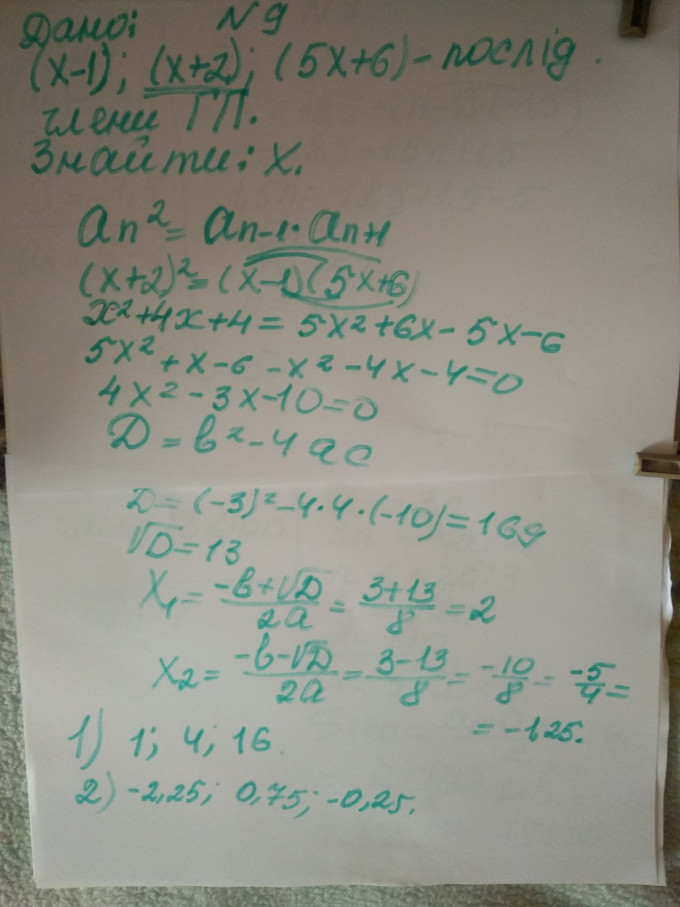 Дано: №9
(x-1); (x+2); (5x+6) - послід.
члени ГП.
Знайти: x.
an² = an-1 · an+1
(x+2)² = (x-1)(5x+6)
x²+4x+4 = 5x²+6x-5x-6
5x²+x-6-x²-4x-4=0
4x²-3x-10=0
D = b²-4ac
D = (-3)²-4·4·(-10) = 169
√D = 13
x₁ = (-b+√D)/2a = (3+13)/8 = 2
x₂ = (-b-√D)/2a = (3-13)/8 = -10/8 = -5/4 =
= -1,25.
1) 1; 4; 16.
2) -2,25; 0,75; -0,25.